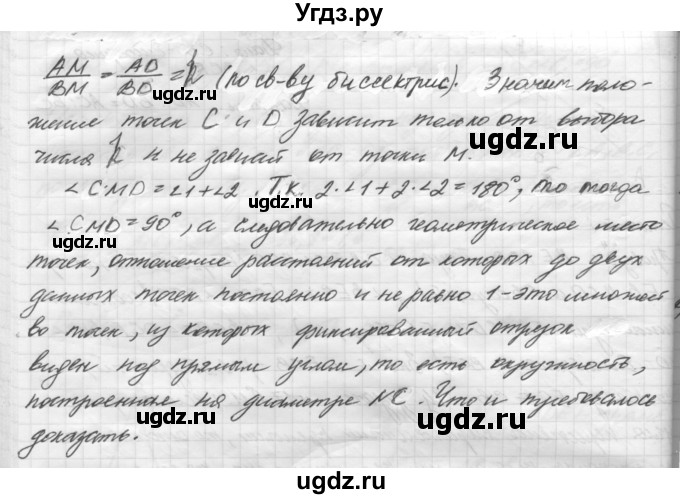 Угдз.ру
AM/BM = AD/BD = k (по св-ву биссектрис). Значит поло-
жение точек C и D зависит только от выбора
числа k и не зависит от точки M.
∠CMD = ∠1+∠2. Т.к. 2·∠1+2·∠2=180°, то тогда
∠CMD=90°, а следовательно геометрическое место
точек, отношение расстояний от которых до двух
данных точек постоянно и не равно 1-это множест
во точек, из которых фиксированный отрезок
виден под прямым углом, то есть окружность,
построенная на диаметре NC. Что и требовалось
доказать.
ugdz.ru
ugdz.ru
ugdz.ru
ugdz.ru
ugdz.ru
ugdz.ru
ugdz.ru
ugdz.ru
ugdz.ru
ugdz.ru
ugdz.ru
ugdz.ru
ugdz.ru